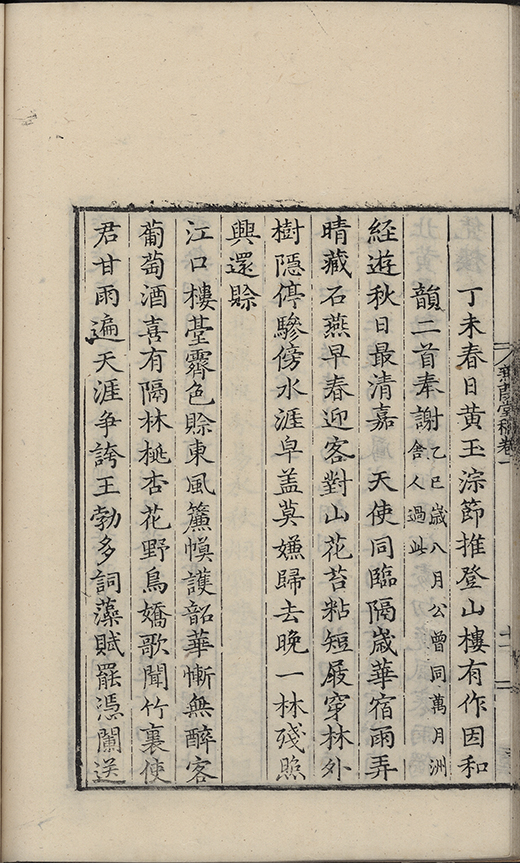 丁未春日黄玉淙節推登山樓有作因和
韻二首奉謝乙巳歲八月公曾同萬月洲
舍人過此
經遊秋日最清嘉 天使同臨隔歲華宿雨弄
晴藏石燕早春迎客對山花苔粘短屐穿林外
樹隱停驂傍水涯皁盖莫嫌歸去晚一林殘照
興還賒
江口樓臺霽色賒東風簾幙護韶華慚無醉客
葡萄酒喜有隔林桃杏花野鳥嬌歌聞竹裏使
君甘雨遍天涯爭誇王勃多詞藻賦罷憑闌送
堂稿卷一